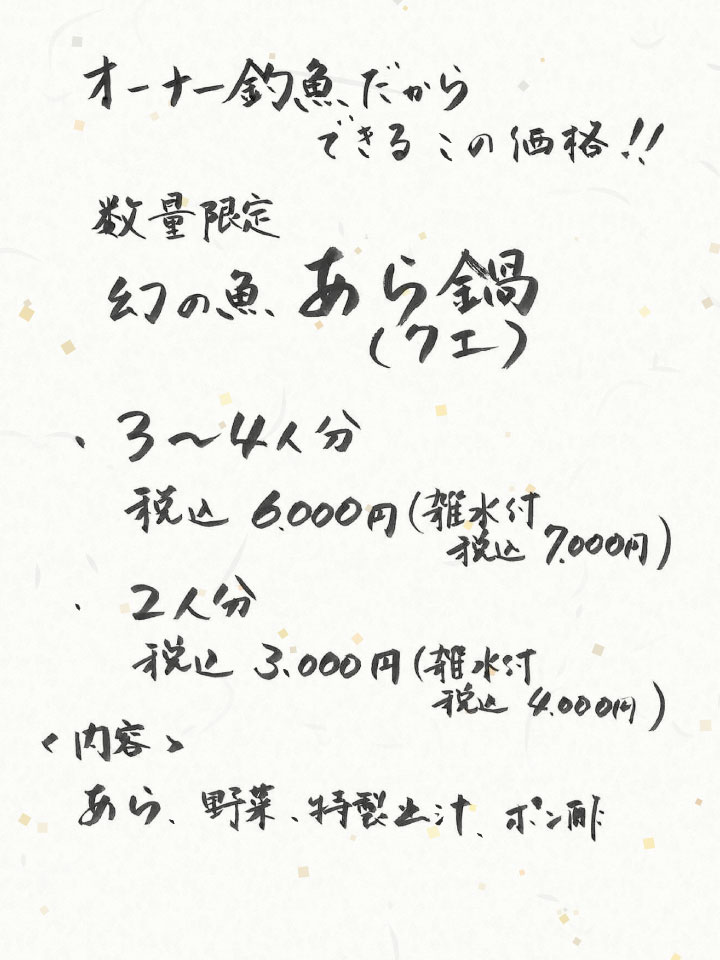 オーナー釣魚だから
できるこの価格!!
数量限定
幻の魚 あら鍋
(クエ)
、3〜4人分
税込 6.000円(雑水付
税込 7.000円)
・2人分
税込 3.000円(雑水付
税込 4.000円)
<内容>
あら、野菜、特製出汁、ポン酢